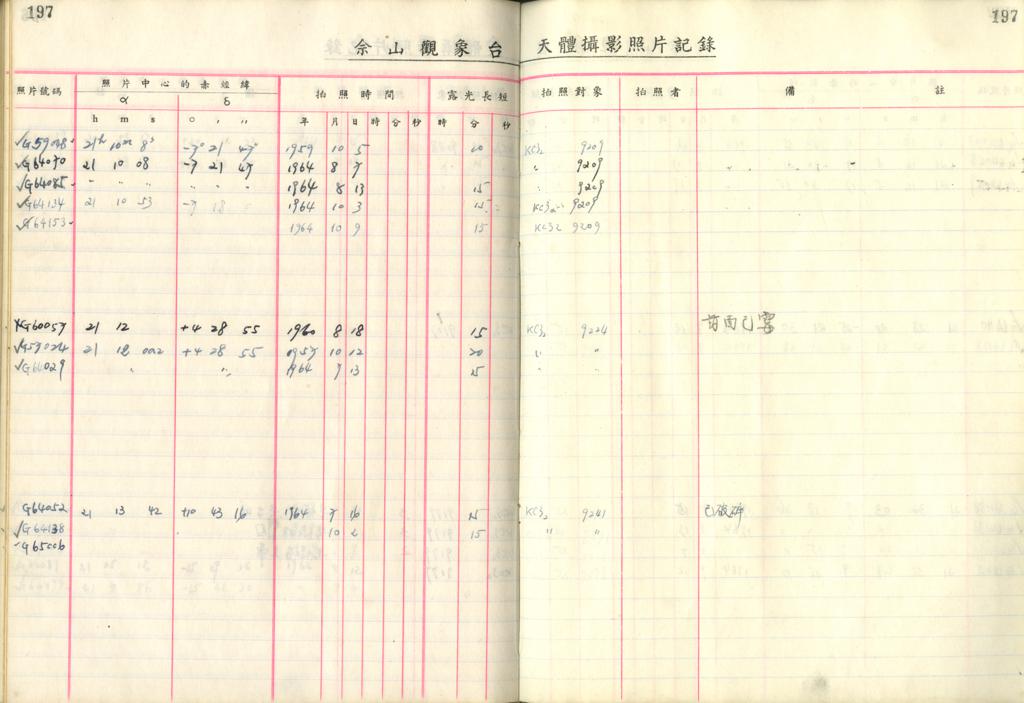 197
197
佘山觀象台 天體攝影照片記錄
照片號碼 照片中心的赤經緯 拍照時間 露光長短 拍照對象 拍照者 備註
α δ
h m s ○ , ,, 年 月 日 時 分 秒 時 分 秒
21h 10m 8s -7° 21 47" 1959 10 5 20 KC32 9209
√G64070 21 10 08 -7 21 47 1964 8 7 " 9209
√G64085 " " " " " " 1964 8 13 15 " 9209
√G64134 21 10 53 -7 18 1964 10 3 15 9209
√G64153 1964 10 9 15 KC32 9209
G60057 21 12 +4 28 55 1960 8 18 15 KC32 9224
√G59024 21 12 002 +4 28 55 1957 10 12 20 " "
√G64029 " " 1964 7 13 15 " "
G64052 21 13 42 +10 43 16 1964 7 16 15 KC32 9241 已破碎
√G64138 10 6 15 " "
G65006